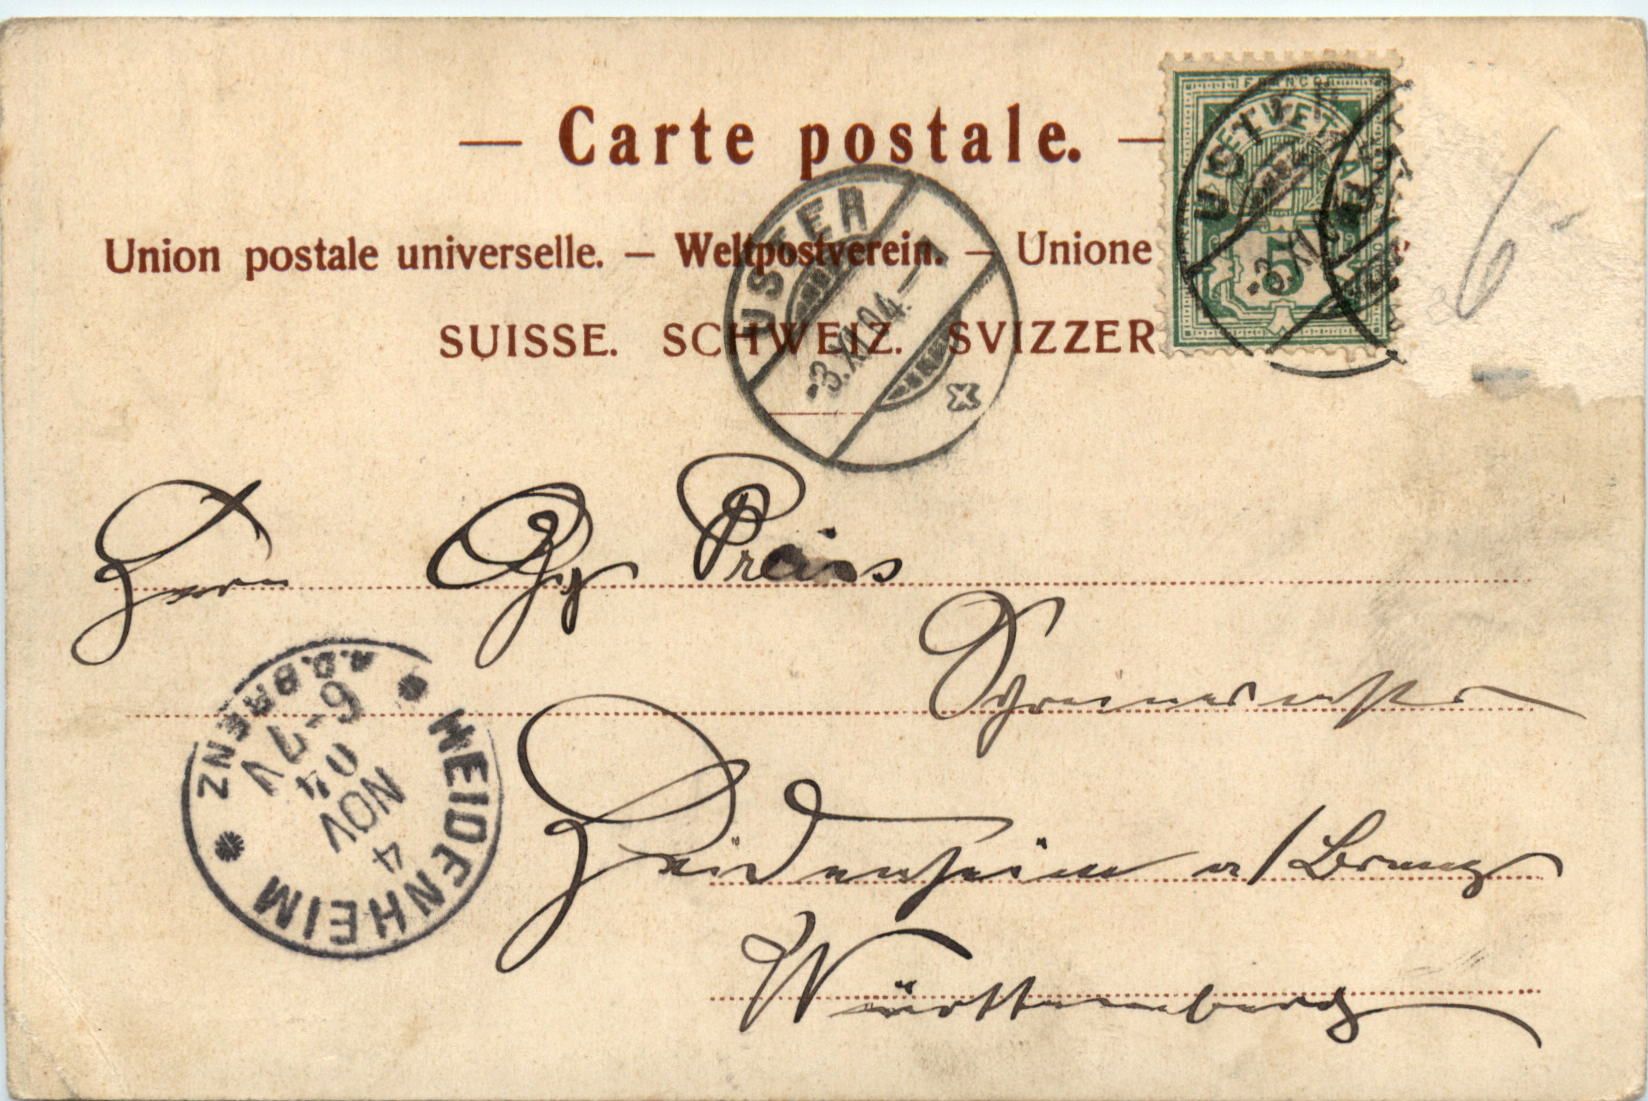 — Carte postale. —
FRANCO
HELVETIA
5
Union postale universelle. — Weltpostverein. — Unione
SUISSE. SCHWEIZ. SVIZZER
USTER
-3.XI.04.-
USTER
-3.XI.
6-
Herrn Gg Preiss
Schreinermstr
Heidenheim a/Brenz
Württemberg
HEIDENHEIM
A.D.BRENZ
4
NOV
04
6-7 V